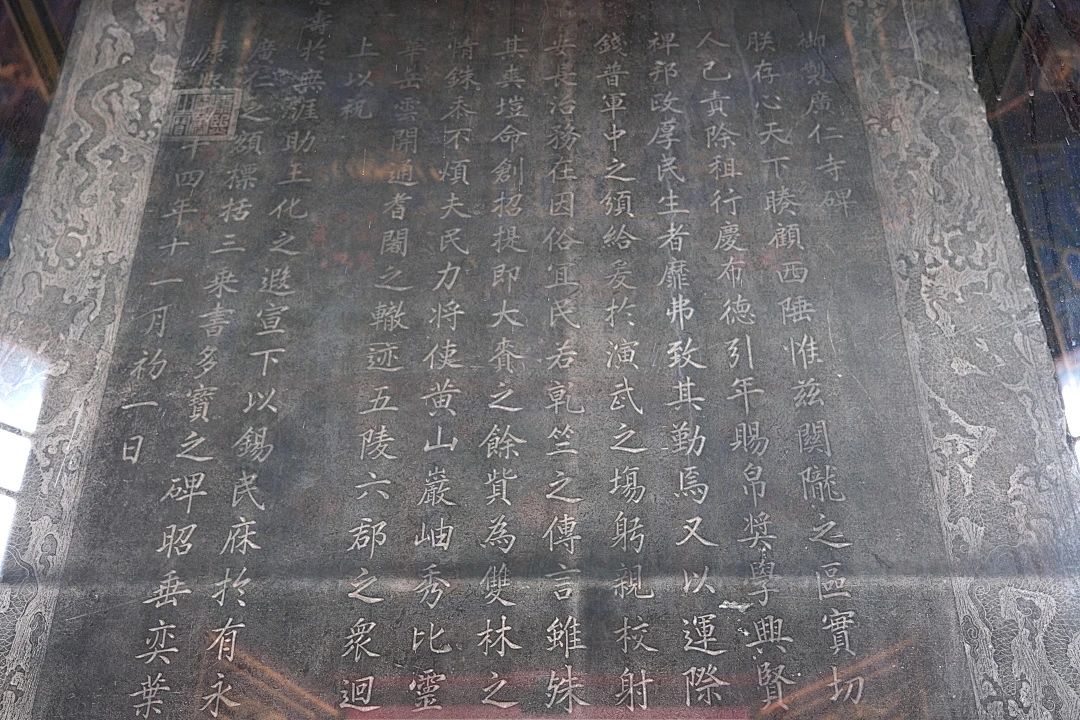 御製廣仁寺碑
朕存心天下睠顧西陲惟兹關隴之區實切
人己責除租行慶布德引年賜帛奬學興賢
裨邦政厚民生者靡弗致其勤焉又以運際
錢普軍中之須給爰於演武之場躬親校射
世長治務在因俗宜民若乾竺之傳言雖殊
其爽塏命創招提即大賚之餘貲為雙林之
情銖黍不煩夫民力将使黄山巖岫秀比靈
華岳雲開通耆闍之轍迹五陵六郡之衆迴
上以祝
壽於無涯助王化之遐宣下以錫民庥於有永
廣仁之額標括三乗書多寶之碑昭垂奕葉
康熙四十四年十一月初一日